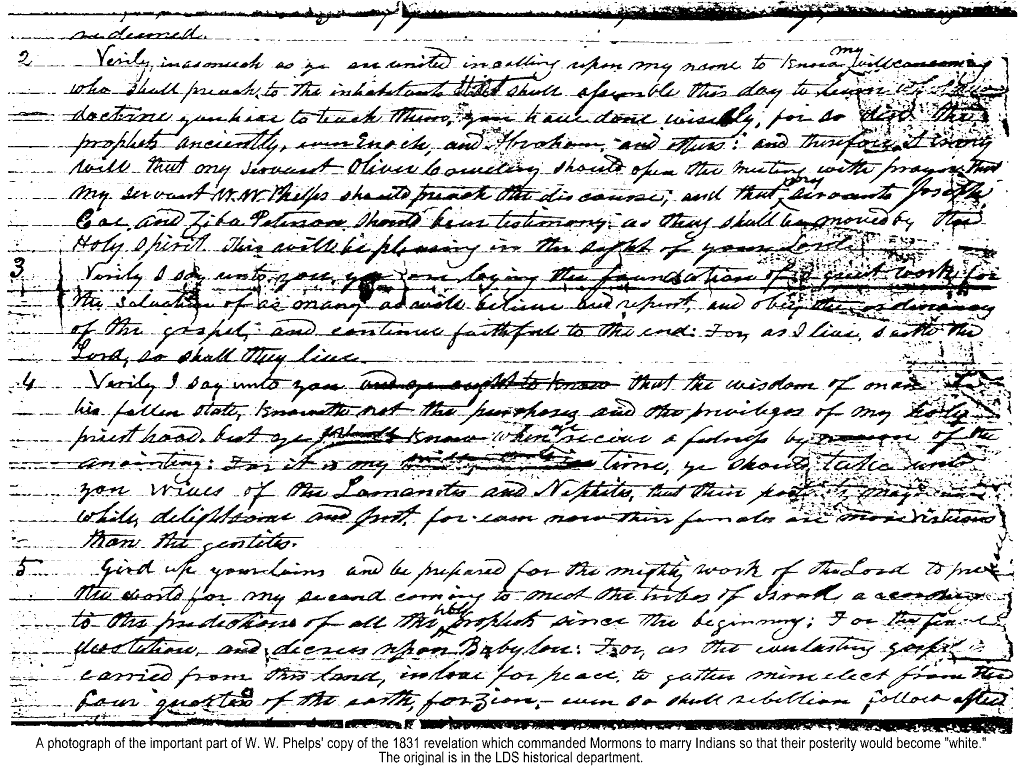 redeemed.
2 Verily, inasmuch as ye are united in calling upon my name to know my will concerning
who shall preach to the inhabitants that shall assemble this day to learn what new
doctrine you have to teach them, you have done wisely, for so did the
prophets anciently, even Enoch, and Abraham, and others: and therefore, it is my
will that my servant Oliver Cowdery should open the meeting with prayer; that
my servant W. W. Phelps should preach the discourse; and that my servants Joseph
Coe and Ziba Peterson should bear testimony as they shall be moved by the
Holy Spirit. This will be pleasing in the sight of your Lord.
3 Verily I say unto you, ye are laying the foundation of a great work for
the salvation of as many as will believe and repent, and obey the ordinances
of the gospel, and continue faithful to the end: For, as I live, saith the
Lord, so shall they live.
4 Verily I say unto you and ye ought to know that the wisdom of man in
his fallen state, knoweth not the purposes and the privileges of my holy
priesthood. but ye know when ye receive a fulness by reason of the
anointing: For it is my time, ye should take unto
you wives of the Lamanites and Nephites, that their posterity may become
white, delightsome and just, for even now their females are more virtuous
than the gentiles.
5 Gird up your loins and be prepared for the mighty work of the Lord to prepare
the world for my second coming to meet the tribes of Israel according
to the predictions of all the holy prophets since the beginning; For the final
desolation, and decrees upon Babylon: For, as the everlasting gospel is
carried from this land, in love for peace, to gather mine elect from the
four quarters of the earth, for Zion,- even so shall rebellion follow after
A photograph of the important part of W. W. Phelps' copy of the 1831 revelation which commanded Mormons to marry Indians so that their posterity would become "white."
The original is in the LDS historical department.